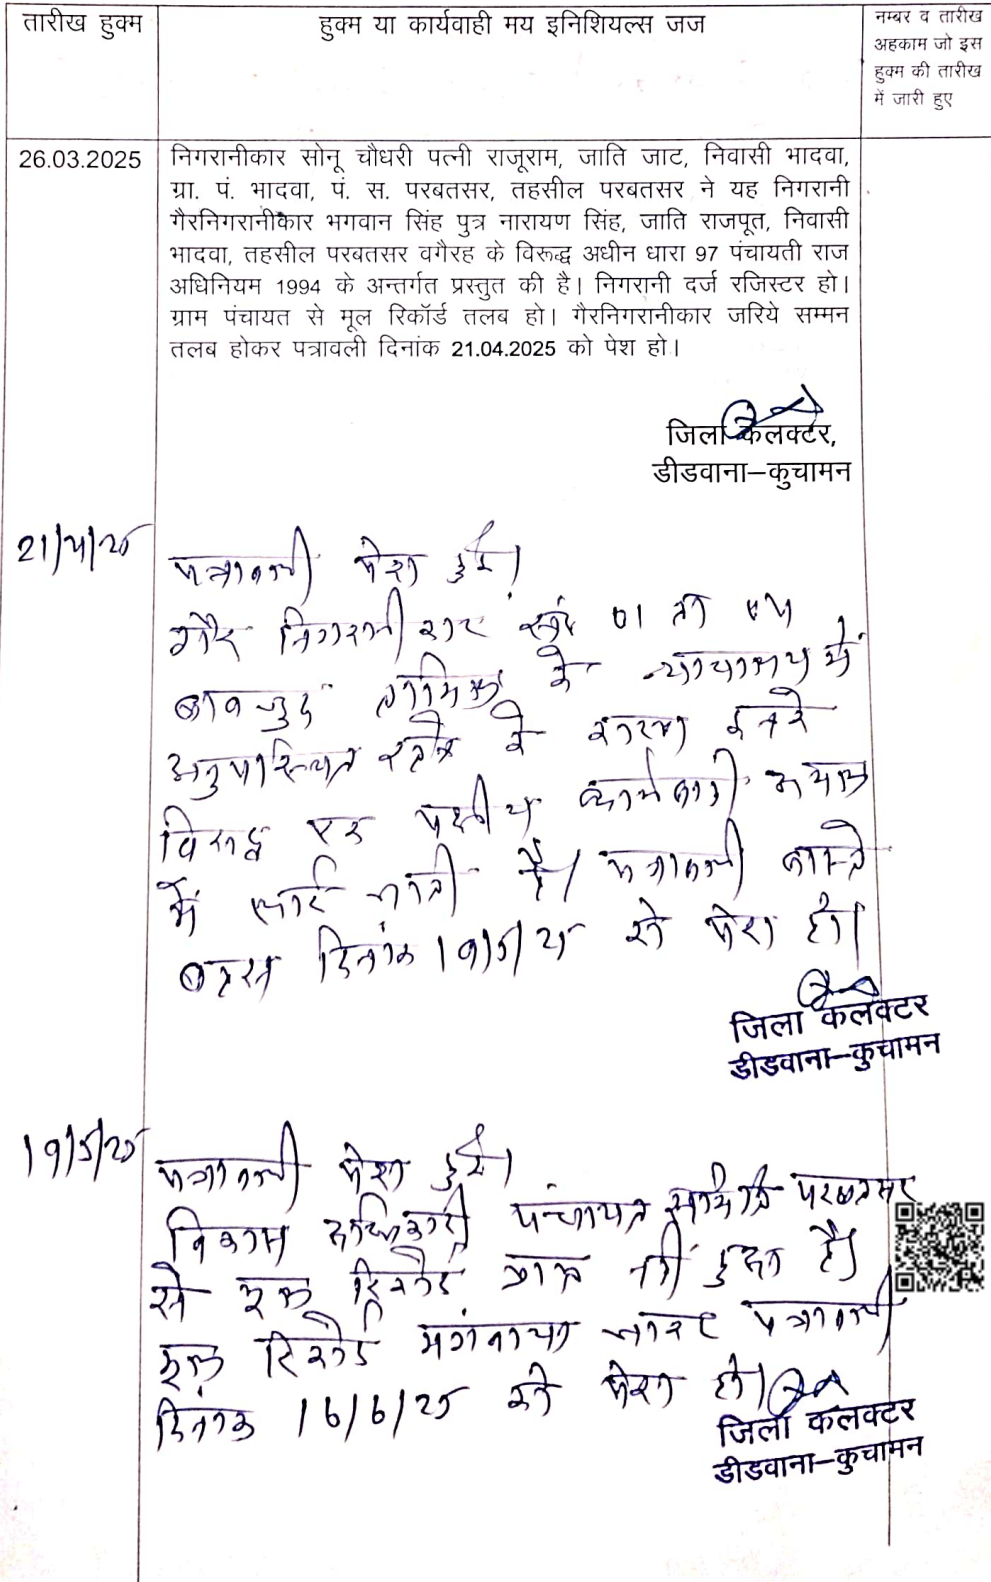 तारीख हुक्म
हुक्म या कार्यवाही मय इनिशियल्स जज
नम्बर व तारीख
अहकाम जो इस
हुक्म की तारीख
में जारी हुए
26.03.2025
निगरानीकार सोनू चौधरी पत्नी राजूराम, जाति जाट, निवासी भादवा,
ग्रा. पं. भादवा, पं. स. परबतसर, तहसील परबतसर ने यह निगरानी
गैरनिगरानीकार भगवान सिंह पुत्र नारायण सिंह, जाति राजपूत, निवासी
भादवा, तहसील परबतसर वगैरह के विरूद्ध अधीन धारा 97 पंचायती राज
अधिनियम 1994 के अन्तर्गत प्रस्तुत की है। निगरानी दर्ज रजिस्टर हो।
ग्राम पंचायत से मूल रिकॉर्ड तलब हो। गैरनिगरानीकार जरिये सम्मन
तलब होकर पत्रावली दिनांक 21.04.2025 को पेश हो।
जिला कलक्टर,
डीडवाना–कुचामन
21/4/25
पत्रावली पेश हुई।
गैर निगरानीकार 01 ता
बावजुद तामिल के न्यायालय में
अनुपस्थित रहने के कारण इनके
विरुद्ध एक पक्षीय कार्यवाही अमल
में लाई जाती है। पत्रावली वास्ते
बहस दिनांक 19/5/25 को पेश हो।
जिला कलक्टर
डीडवाना–कुचामन
19/5/25
पत्रावली पेश हुई।
विकास अधिकारी पंचायत समिति परबतसर
से मूल रिकॉर्ड प्राप्त नहीं हुआ है।
मूल रिकॉर्ड मगंवाया जाकर पत्रावली
दिनांक 16/6/25 को पेश हो।
जिला कलक्टर
डीडवाना–कुचामन